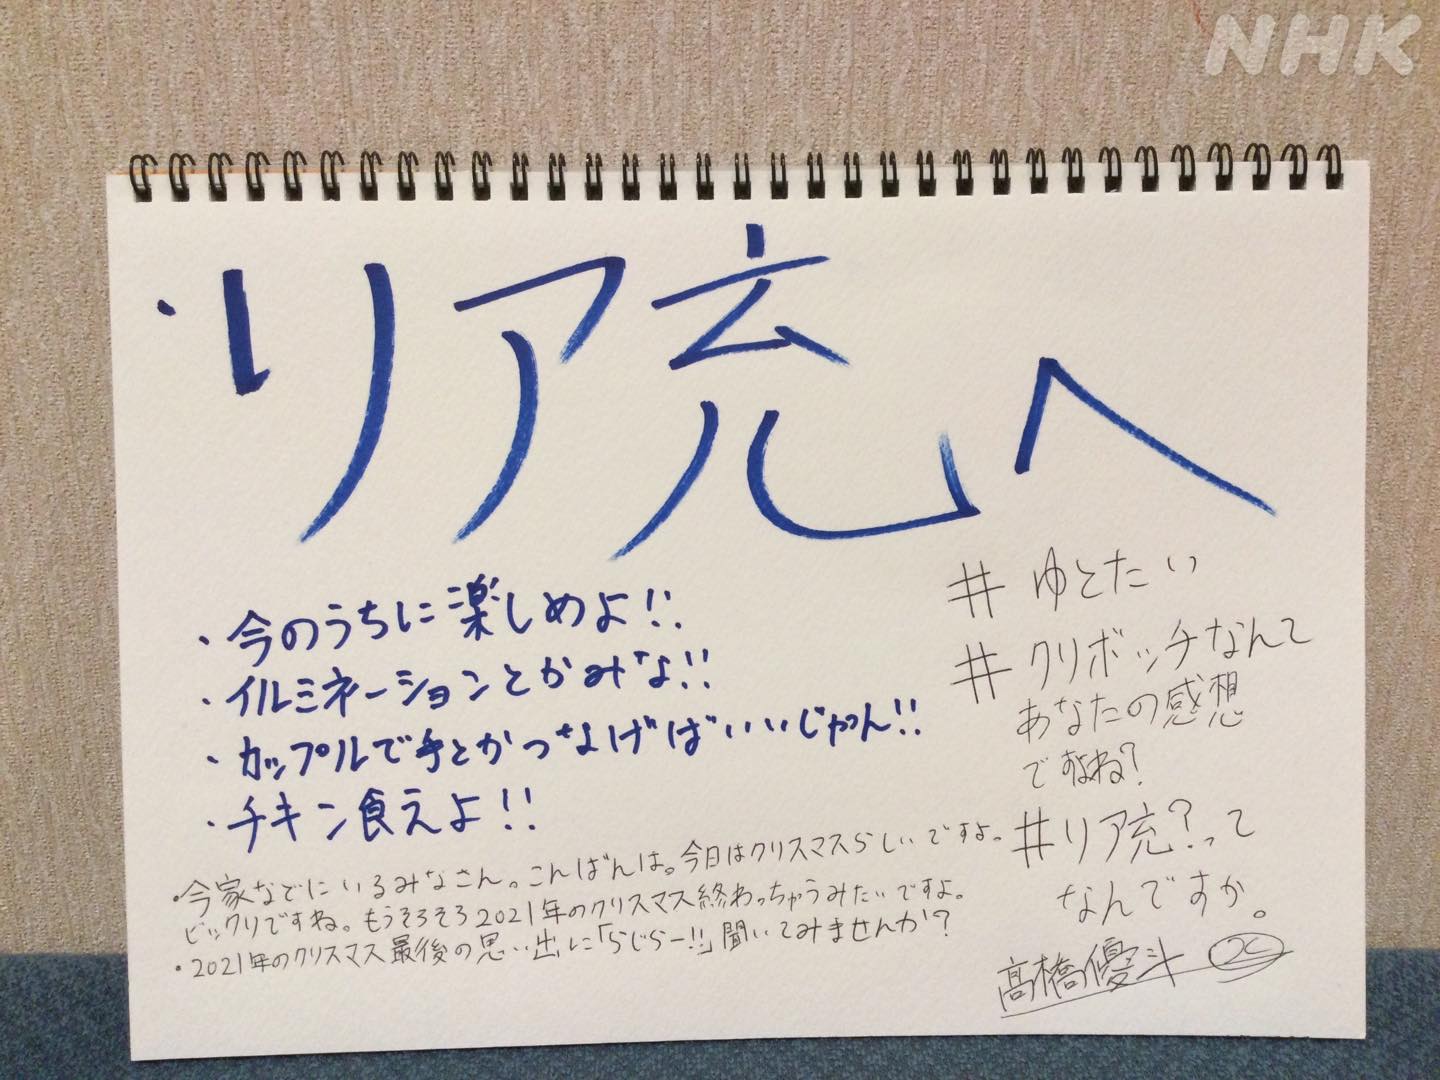 NHK
・リア充へ
・今のうちに楽しめよ!!
・イルミネーションとかみな!!
・カップルで手とかつなげばいいじゃん!!
・チキン食えよ!!
・今家などにいるみなさん。こんばんは。今日はクリスマスらしいですよ。
ビックリですね。もうそろそろ2021年のクリスマス終わっちゃうみたいですよ。
・2021年のクリスマス最後の思い出に「らじらー!!」聞いてみませんか?
#ゆとたい
#クリボッチなんて
あなたの感想
ですよね?
#リア充?って
なんですか。
髙橋優斗